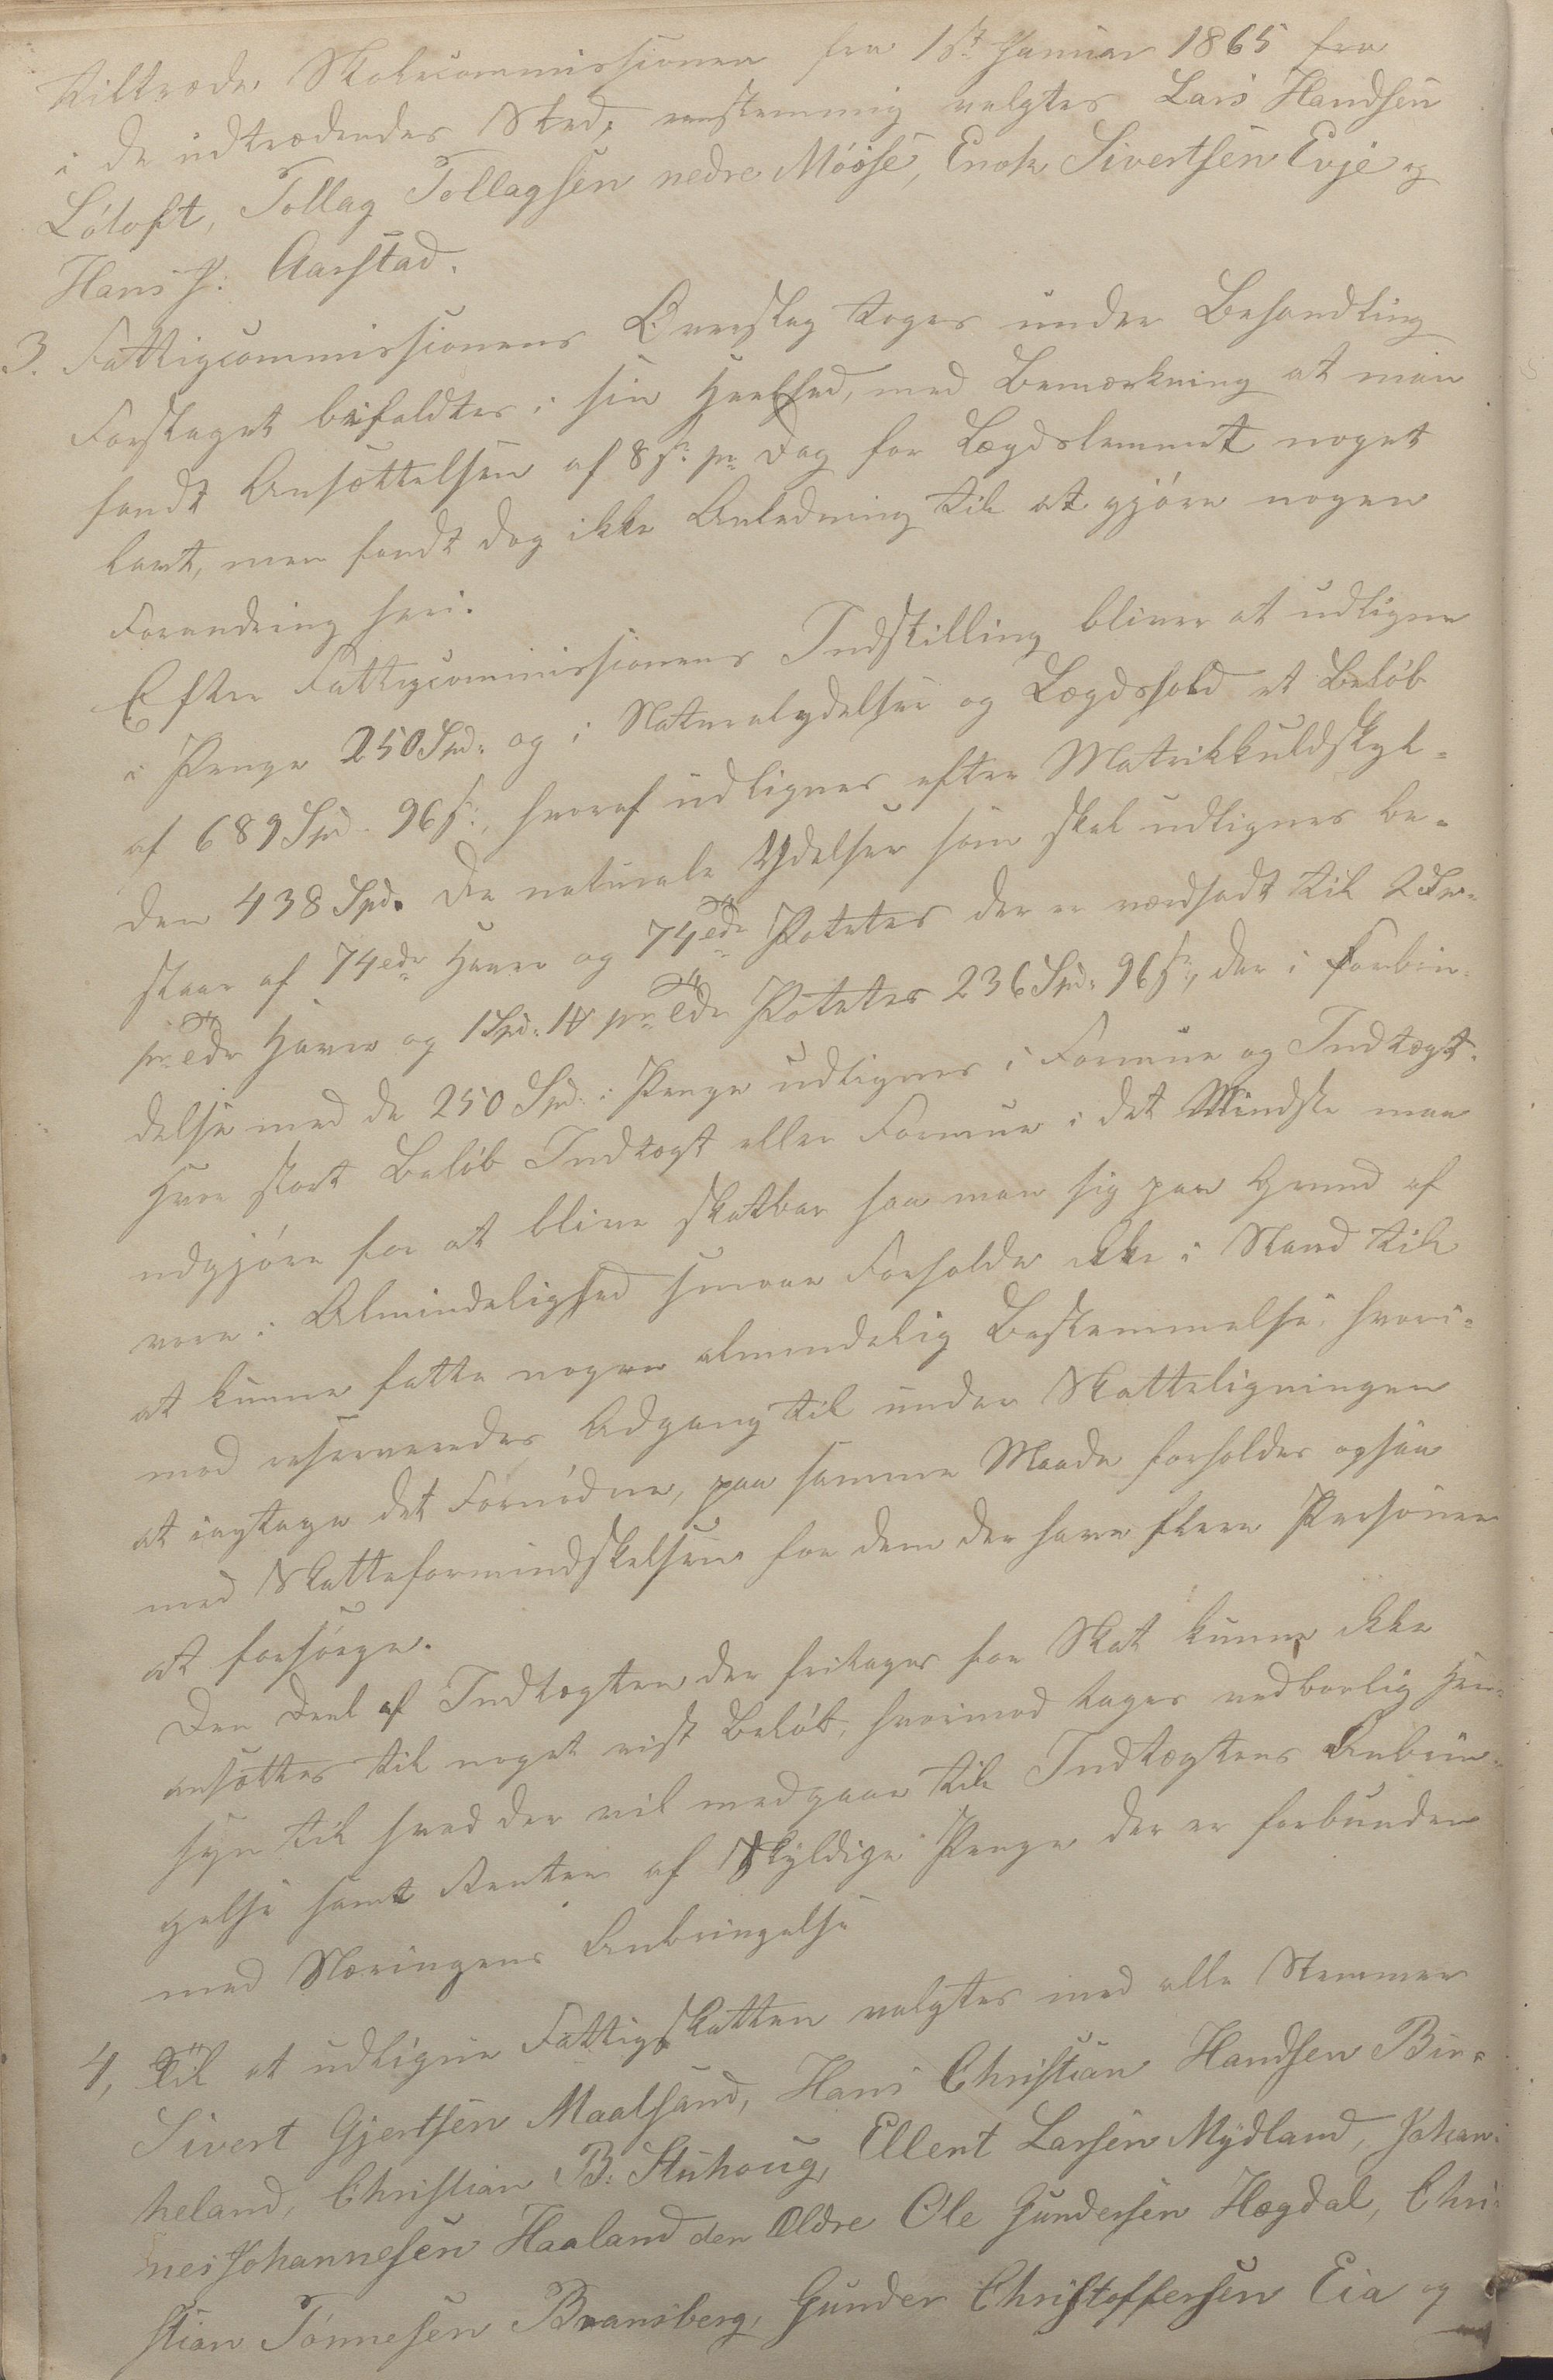 tiltræde Skolecommissionen fra 1ste Januar 1865 fra
i de udtrædendes Sted, eenstemmig valgtes Lars Handsen
Lótoft, Tollag Tollagsen nedre Móise, Enok Sivertsen Evje og
Hans J: Aarstad.
3. Fattigcommissionens Overslag toges under Behandling
Forslaget bifaldtes i sin Heelhed, med Bemærkning at man
fandt Ansættelsen af 8 s: pr Dag for Lægdslemmet noget
lavt, men fandt dog ikke Anledning til at gjóre nogen
Forandring heri.
Efter Fattigcommissionens Indstilling bliver at udligne
i Penge 250 Spd: og i Naturalydelser og Lægdshold et Belób
af 689 Spd. 96 s:, hvoraf udlignes efter Matrikkuldskyl-
den 438 Spd. De naturale Ydelser som skal udlignes be-
staar af 74 Havre og 74 Potetes der er værdsadt til 2 Sp.
pr Havre og 1 Spd: pr Potetes 236 Spd: 96 s:, der i Forbin-
delse med de 250 Spd: i Penge udlignes i Formue og Indtægt.
Hvor stort Belób Indtægt eller Formue i det Mindste maa
udgjóre for at blive skatbar saa man sig paa Grund af
vore i Almindelighed smaae Forholde ikke i Stand til
at kunne fatte nogen almindelig Bestemmelse, hvori-
mod reserveredes Adgang til under Skatteligningen
at iagtage det Fornódne, paa samme Maade forholdes ogsaa
med Skatteformindskelsen for dem der have flere Personer
at forsórge.
Den Deel af Indtægten der fritages for Skat kunne ikke
ansættes til noget vist Belób, hvorimod tages vedbørlig Hen-
syn til hvad der vil medgaae til Indtægtens Anbrin-
gelse samt Renter af skyldige Penge der er forbunden
med Næringens Anbringelse
4, Til at udligne Fattigskatten valgtes med alle Stemmer
Sivert Gjertsen Maalsand, Hans Christian Handsen Bir-
keland, Christian B. Stuhoug, Ellent Larsen Mydland, Johan-
nes Johannesen Haaland den Ældre Ole Gundersen Hægdal, Chri-
stian Tónnesen Bransberg, Gunder Christoffersen Eia og